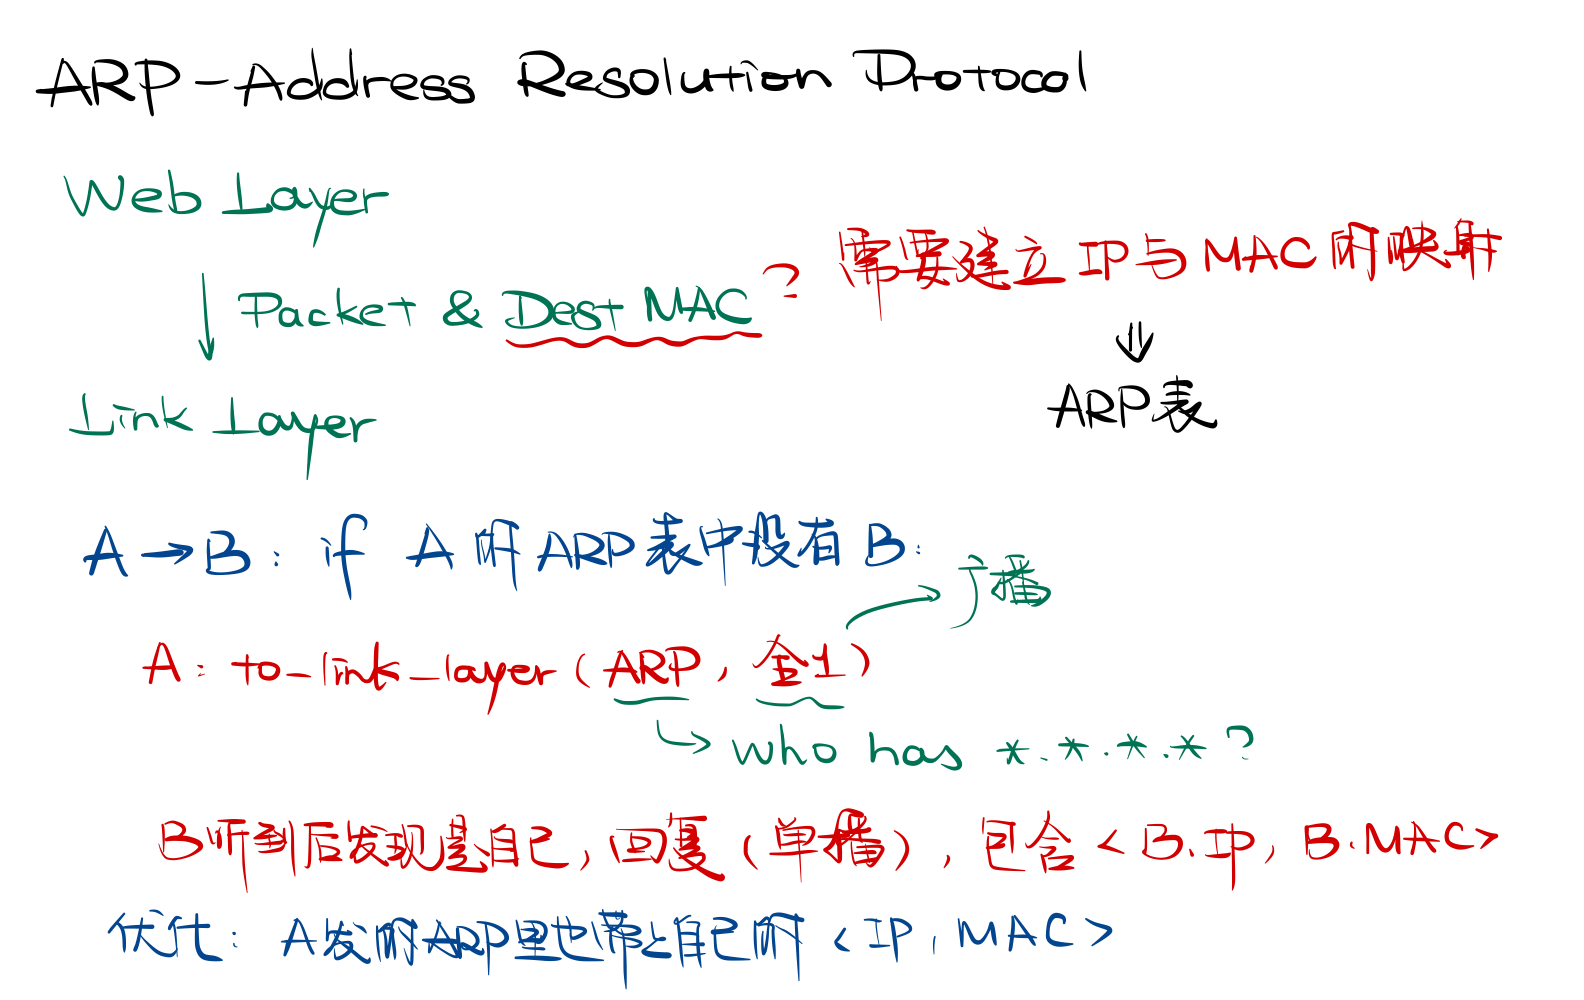 ARP-Address Resolution Protocol
Web Layer
Packet & Dest MAC ? 需要建立IP与MAC的映射
ARP表
Link Layer
A→B: if A的ARP表中没有B:
广播
A: to-link-layer(ARP, 全1)
who has *.*.*.*?
B听到后发现是自己, 回复(单播), 包含<B.IP, B.MAC>
优化: A发的ARP里也带上自己的<IP, MAC>